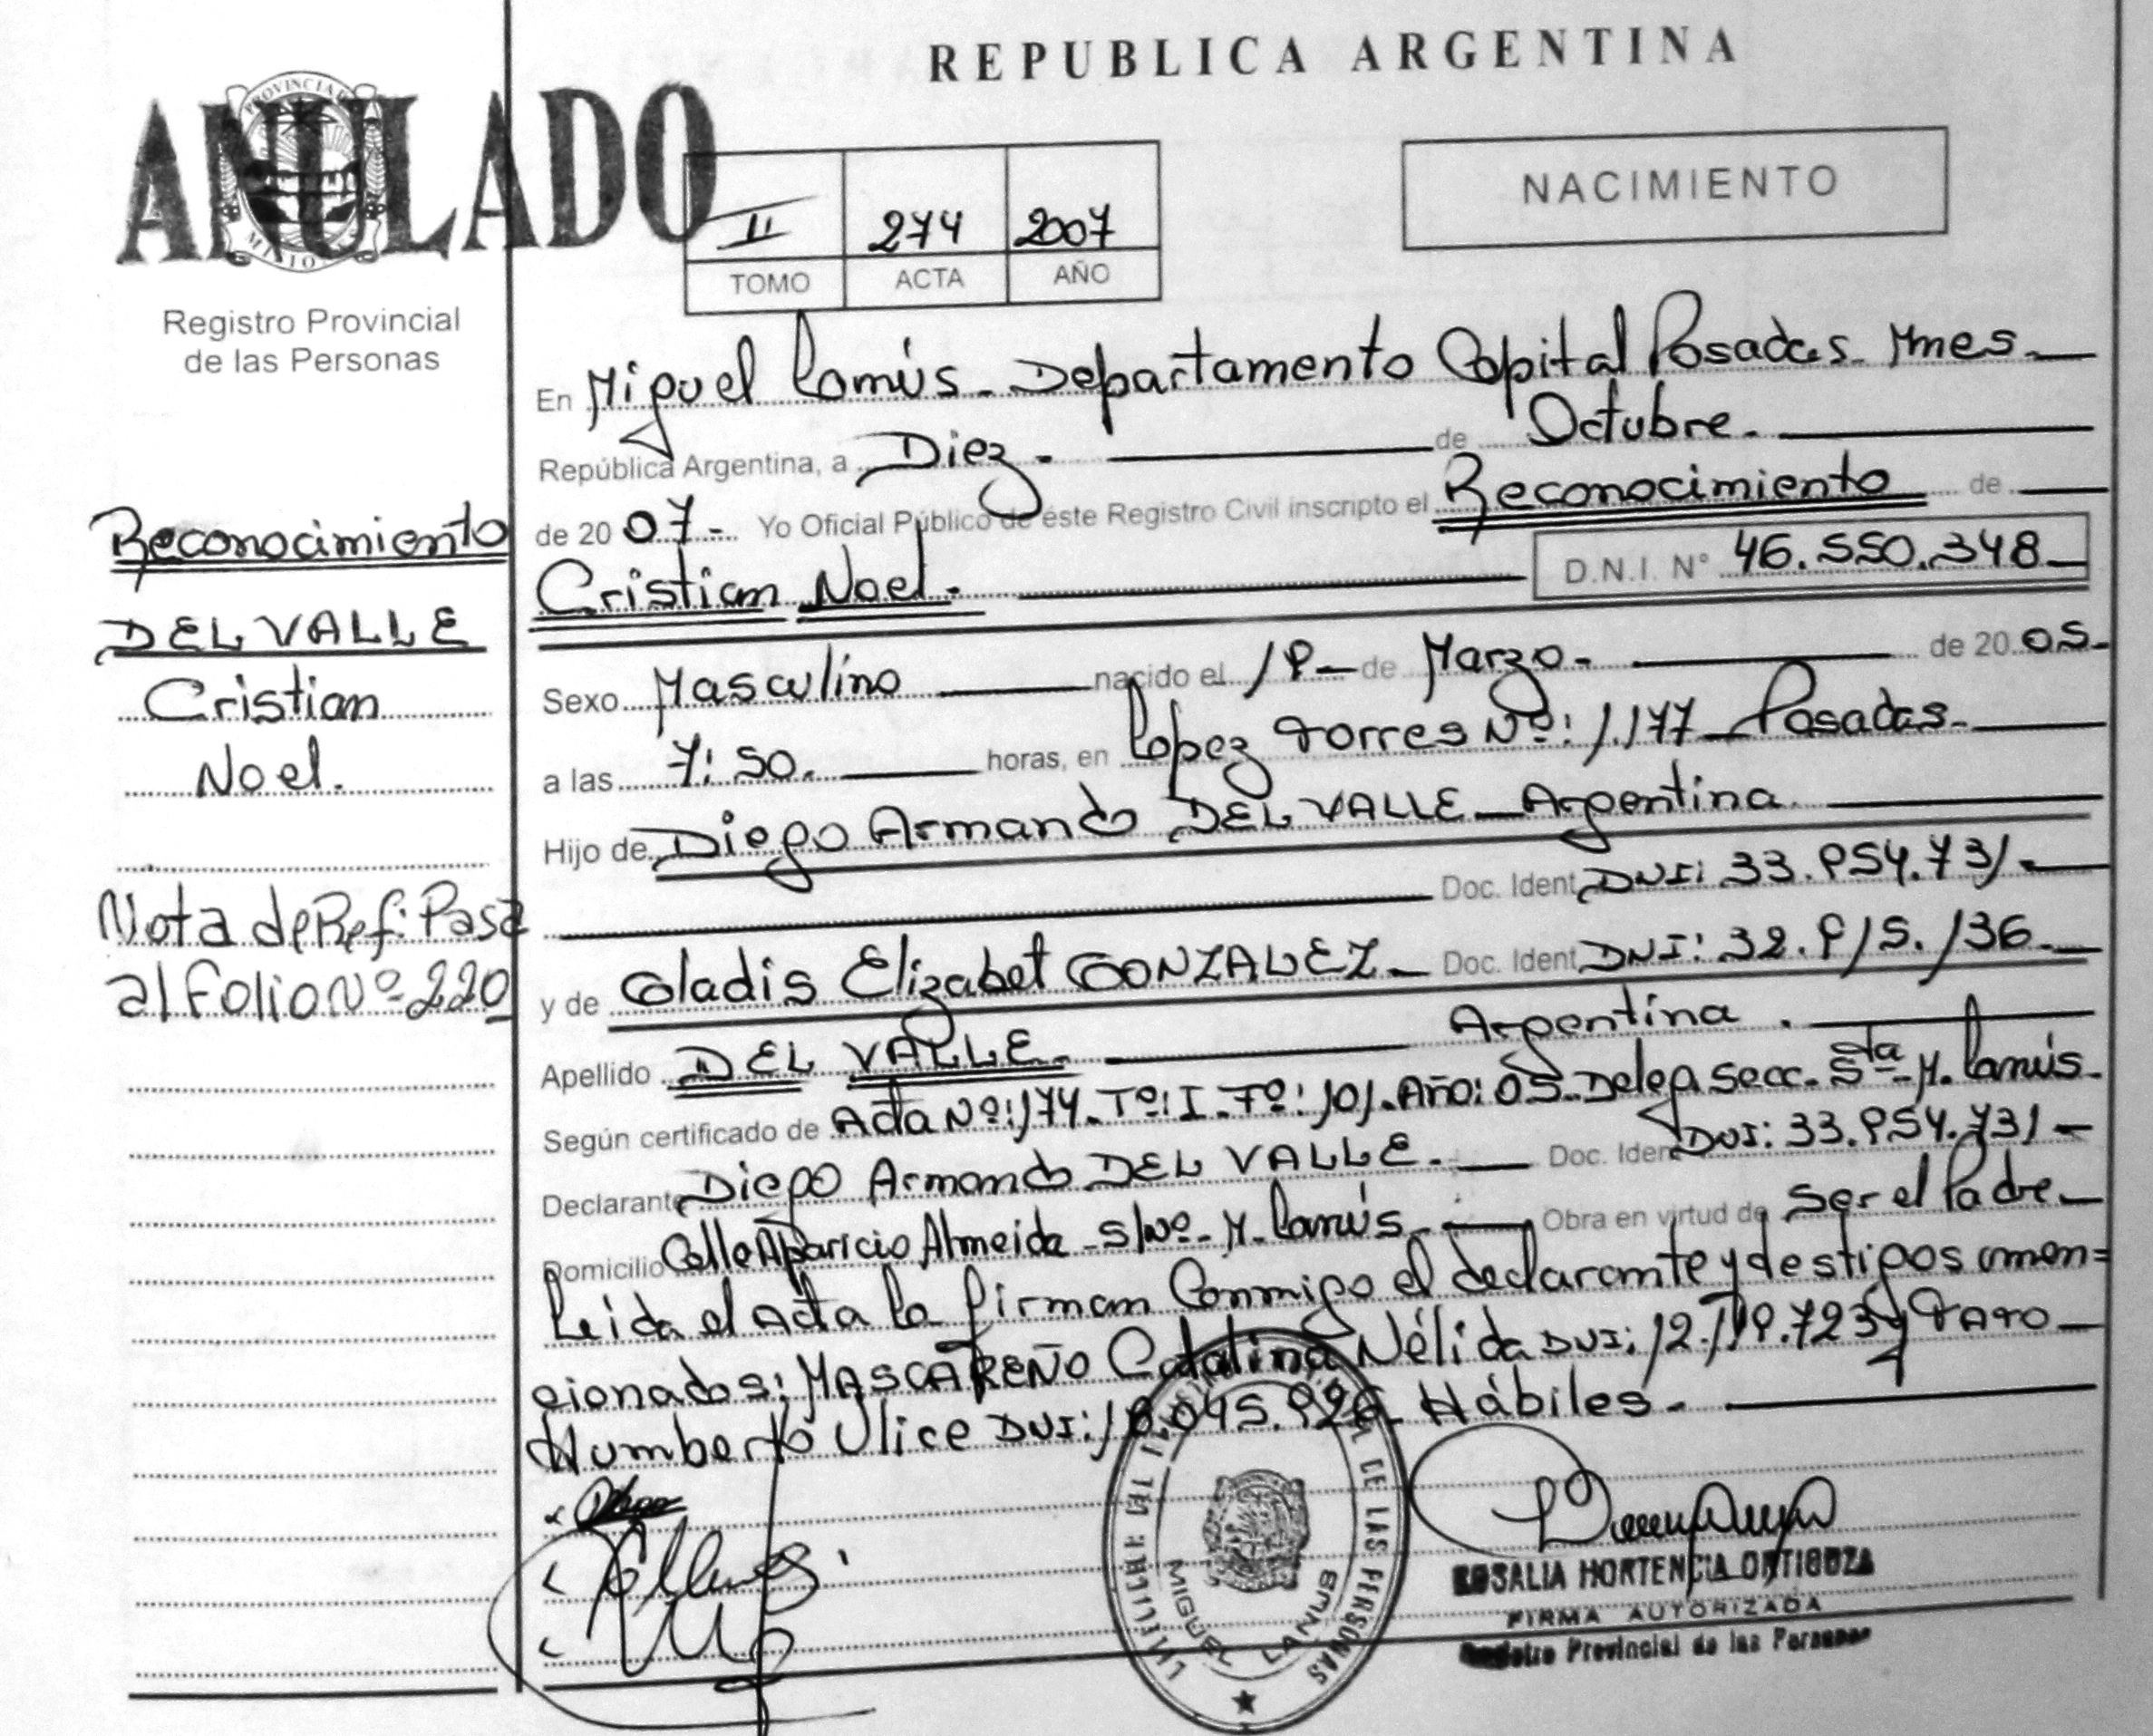 REPUBLICA ARGENTINA
ANULADO
PROVINCIA DE MISIONES
NACIMIENTO
II 274 2007
TOMO ACTA AÑO
Registro Provincial
de las Personas
Reconocimiento
DEL VALLE
Cristian
Noel.
Nota de Ref: Pasa
al folio Nº 220
En Miguel Lanús - Departamento Capital Posadas Mnes
República Argentina, a Diez - de Octubre.
de 2007 - Yo Oficial Público de éste Registro Civil inscripto el Reconocimiento de
Cristian Noel. D.N.I. N° 46.550.348
Sexo Masculino nacido el 19 de Marzo - de 2005
a las 7:50. horas, en Lopez Torres Nº: 1.177 - Posadas
Hijo de Diego Armando DEL VALLE - Argentina
Doc. Ident DNI: 33.954.731
y de Gladis Elizabet GONZALEZ - Doc. Ident DNI: 32.915.136
Apellido DEL VALLE. Argentina.
Según certificado de Acta Nº: 174 - Tº: I - Fº: 101 - Año: 05 - Deleg Secc. Sta M. Lanús
Declarante Diego Armando DEL VALLE. Doc. Iden DNI: 33.954.731
Domicilio Calle Aparicio Almeida - S/Nº - M. Lanús - Obra en virtud de Ser el Padre
Leída el Acta la firman Conmigo el declarante y testigos amen=
cionados: MASCAREÑO Catalina Nélida DNI: 12.119.723 y
Humberto Ulice DNI: Hábiles -
DE LAS PERSONAS
MIGUEL LANUS
ROSALIA HORTENCIA ORTIGOZA
FIRMA AUTORIZADA
Registro Provincial de las Personas